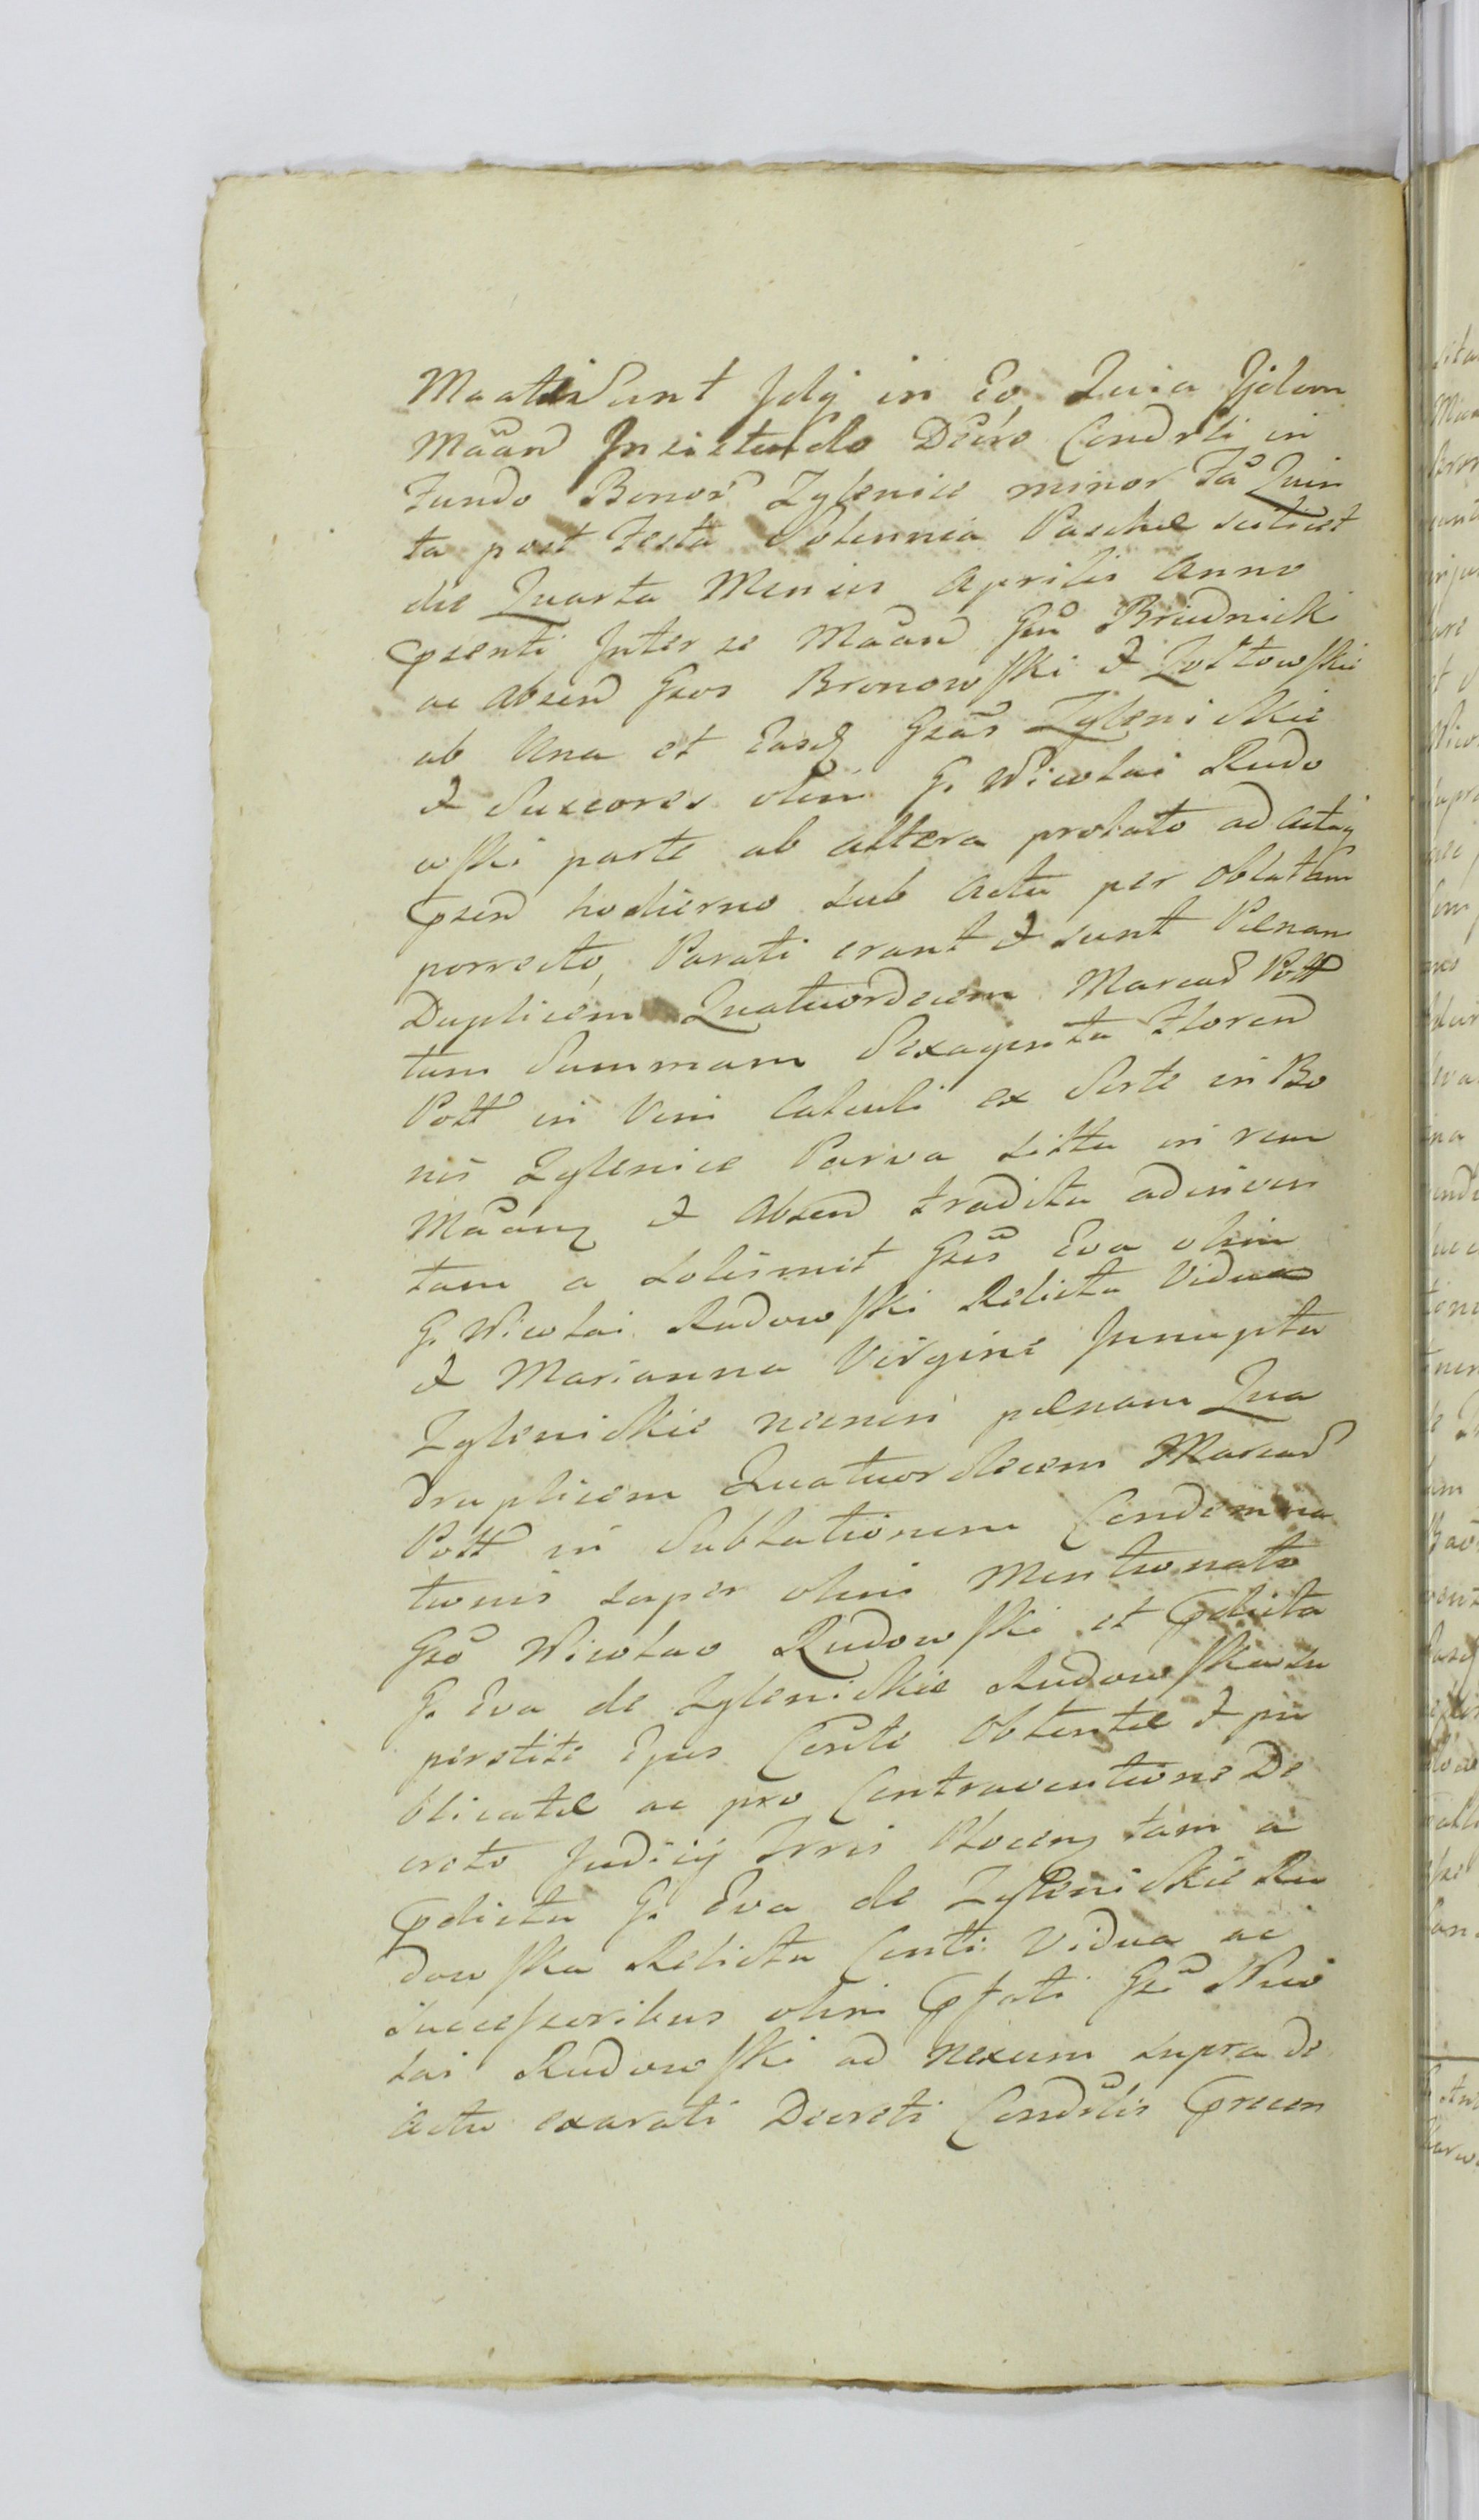 Maatti Sunt Idq in Eo Quia Iidem
Maand Insistendo Decro Condrli in
Fundo Bonor Zglenice minor Fa Quin
ta post Festa Solennia Paschae scilicet
die Quarta Mensis Aprilis Anno
Psenti Inter se Maand Gsu Briudnicki
ac Absen Gsos Bronowski & Zołtowskie
ab Una et Easq Gsas Zglenickie
& Succores olim G. Nicolai Rudo
wski parte ab altera prolato ad Actaq
Psen hodierno sub Actu per Oblatam
porrecto, Parati erant & sunt Paenam
Duplicem Quatuordecem Marcas Poll
tam Summam Sexaginta Floren
Poll in Vim Calculi ex Sorte in Bo
nis Zglenice Parva sitta in rem
Maanq & Absen tradita adinven
tam a solismet Gsis Eva olim
G. Nicolai Rudowski Relicta Vidua
& Marianna Virgine Innupta
Zglenickie necnon paenam Qua
druplicem Quatuordecem Marcas
Poll in Sublationem Condemna
tionis super olim Mentionato
Gso Nicolao Rudowski et Pdicta
G. Eva de Zglenickie Rudowska su
perstite Ejus Conte Obtentae & pu
blicatae ac pro Contraventione De
creto Judicij Trris Plocenq tam a
Pdicta G. Eva de Zglenickie Ru
dowska Relicta Conti Vidua ac
Successoribus olim Pfati Gsi Nico
lai Rudowski ad nexum supra de
Actu exarati Decreti Condrlis Precen